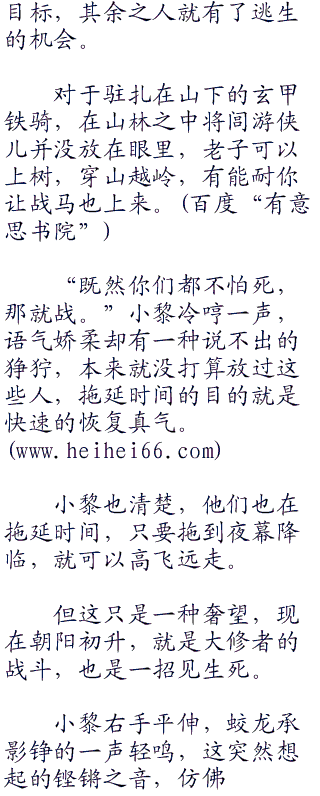 目标，其余之人就有了逃生
的机会。
对于驻扎在山下的玄甲
铁骑，在山林之中将闾游侠
儿并没放在眼里，老子可以
上树，穿山越岭，有能耐你
让战马也上来。(百度“有意
思书院”)
“既然你们都不怕死，
那就战。”小黎冷哼一声，
语气娇柔却有一种说不出的
狰狞，本来就没打算放过这
些人，拖延时间的目的就是
快速的恢复真气。
(www.heihei66.com)
小黎也清楚，他们也在
拖延时间，只要拖到夜幕降
临，就可以高飞远走。
但这只是一种奢望，现
在朝阳初升，就是大修者的
战斗，也是一招见生死。
小黎右手平伸，蛟龙承
影铮的一声轻鸣，这突然想
起的铿锵之音，仿佛